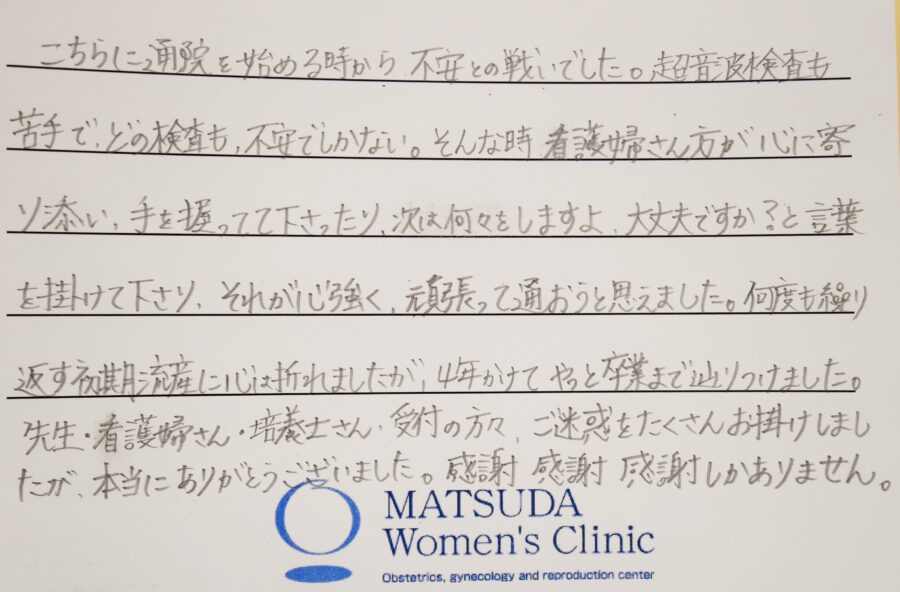 こちらに通院を始める時から 不安との戦いでした。超音波検査も
苦手で、どの検査も、不安でしかない。そんな時 看護婦さん方が 心に寄
り添い、手を握ってて下さったり、次は何々をしますよ、大丈夫ですか?と言葉
を掛けて下さり、それが心強く、頑張って通おうと思えました。何度も繰り
返す初期流産に心は折れましたが、4年かけて やっと卒業まで辿りつけました。
先生・看護婦さん・培養士さん・受付の方々、ご迷惑をたくさんお掛けしまし
たが、本当にありがとうございました。感謝 感謝 感謝しかありません。
MATSUDA
Women's Clinic
Obstetrics, gynecology and reproduction center